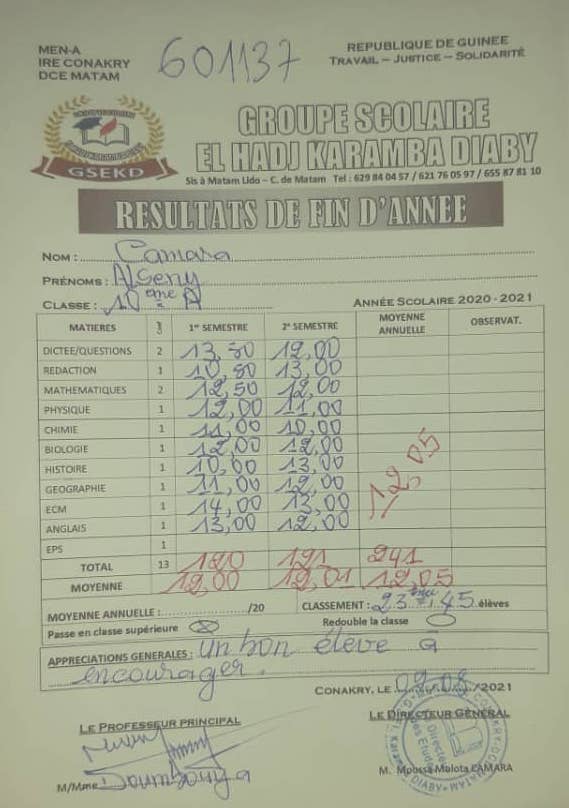 MEN-A
IRE CONAKRY
DCE MATAM
601137
REPUBLIQUE DE GUINEE
TRAVAIL – JUSTICE – SOLIDARITÉ
GSEKD
GROUPE SCOLAIRE
EL HADJ KARAMBA DIABY
Sis à Matam Lido – C. de Matam Tel : 629 84 04 57 / 621 76 05 97 / 655 87 81 10
RESULTATS DE FIN D'ANNEE
NOM : Camara
PRÉNOMS : Alseny
CLASSE : 10 ème A
ANNÉE SCOLAIRE 2020 - 2021
MATIERES 1er SEMESTRE 2e SEMESTRE MOYENNE ANNUELLE OBSERVAT.
DICTEE/QUESTIONS 2 13,50 12,00
REDACTION 1 10,50 13,00
MATHEMATIQUES 2 12,50 12,00
PHYSIQUE 1 12,00 11,00
CHIMIE 1 11,00 10,00
BIOLOGIE 1 12,00 12,00
HISTOIRE 1 10,00 13,00
GEOGRAPHIE 1 11,00 12,00
ECM 1 14,00 13,00
ANGLAIS 1 13,00 12,00
12,05
EPS 1
TOTAL 13 120 121 241
MOYENNE 12,00 12,01 12,05
MOYENNE ANNUELLE : /20 CLASSEMENT : 23 ème / 45 élèves
Passe en classe supérieure Redouble la classe
APPRECIATIONS GENERALES : un bon élève à
encourager.
CONAKRY, LE /2021
LE PROFESSEUR PRINCIPAL
LE DIRECTEUR GÉNÉRAL
M/Mme Doumbouya
M. Moussa Malota CAMARA